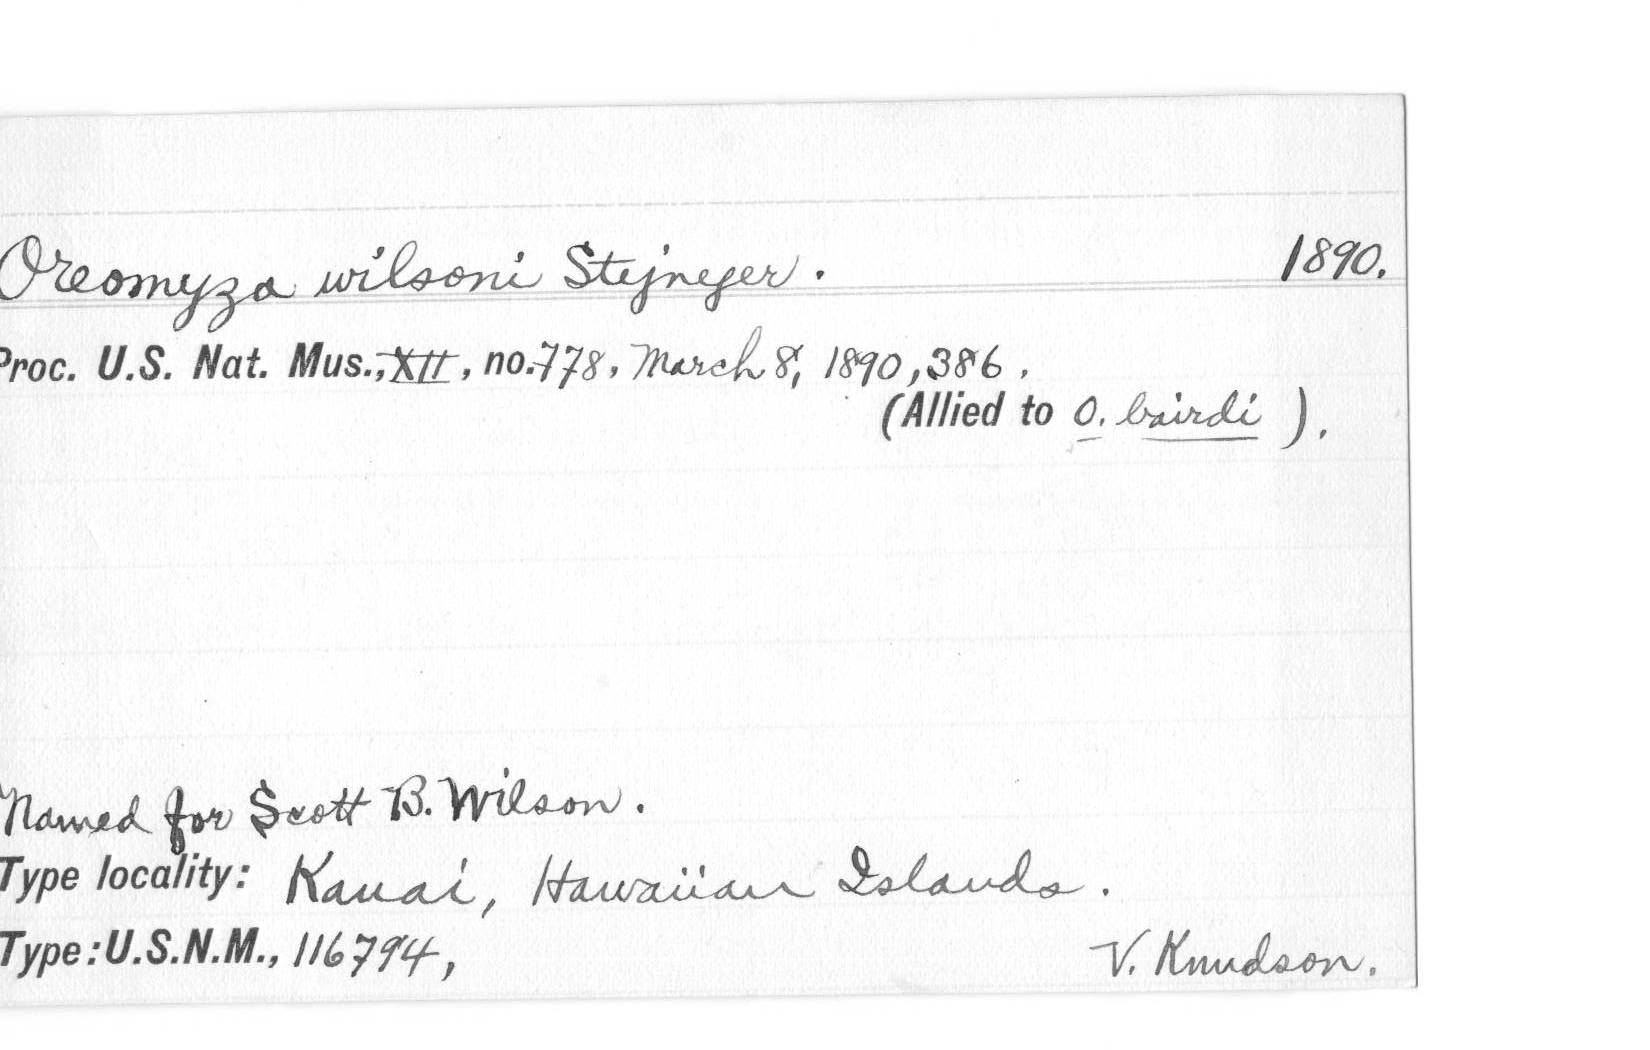 Oreomyza wilsoni Stejneger. 1890.
Proc. U.S. Nat. Mus., XII, no. 778, March 8, 1890, 386.
(Allied to O. bairdi).
Named for Scott B. Wilson.
Type locality: Kauai, Hawaiian Islands.
Type: U.S.N.M., 116794, V. Knudson.